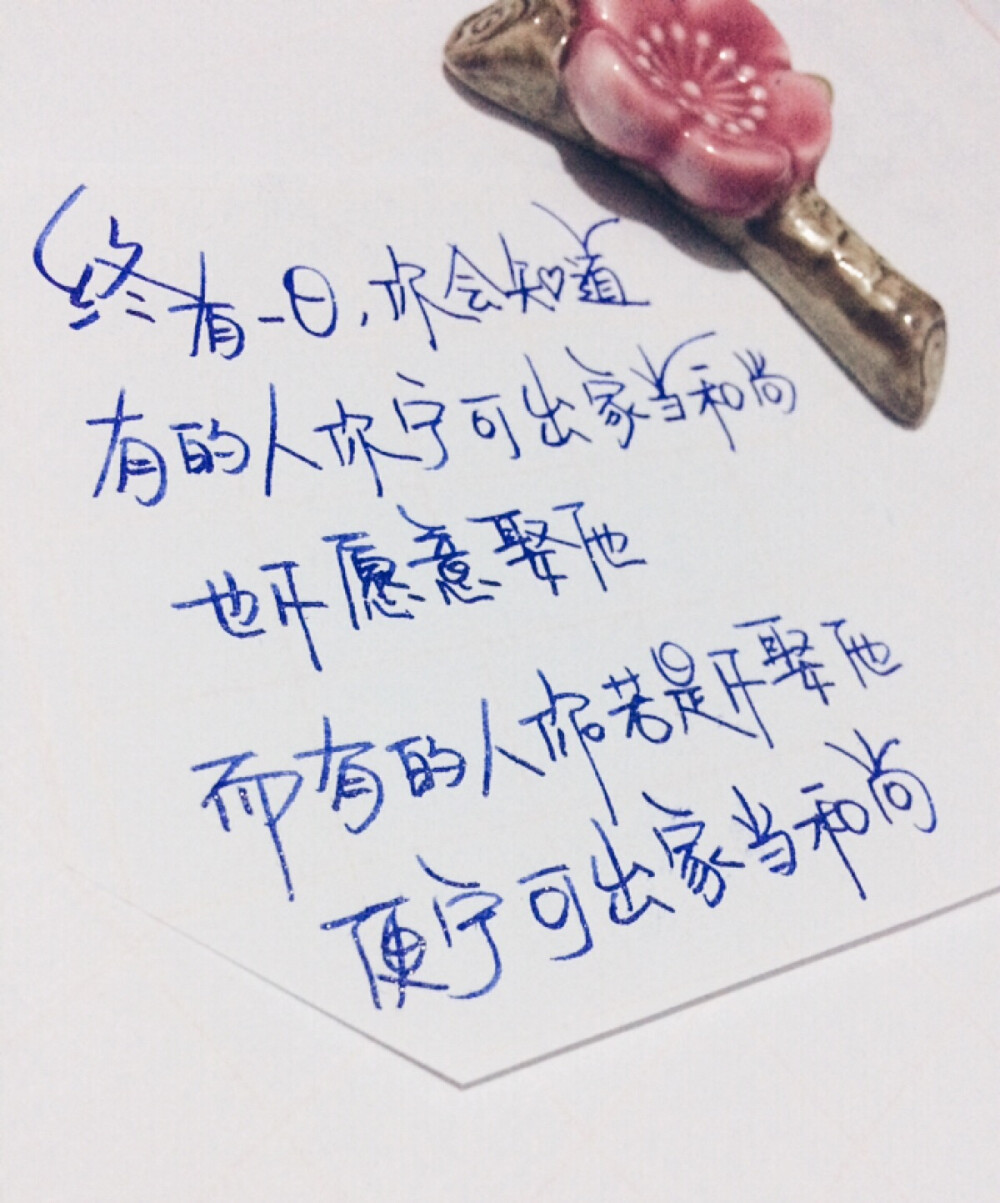 终有一日,你会知道
有的人你宁可出家当和尚
也不愿意娶他
而有的人你若是不娶他
便宁可出家当和尚